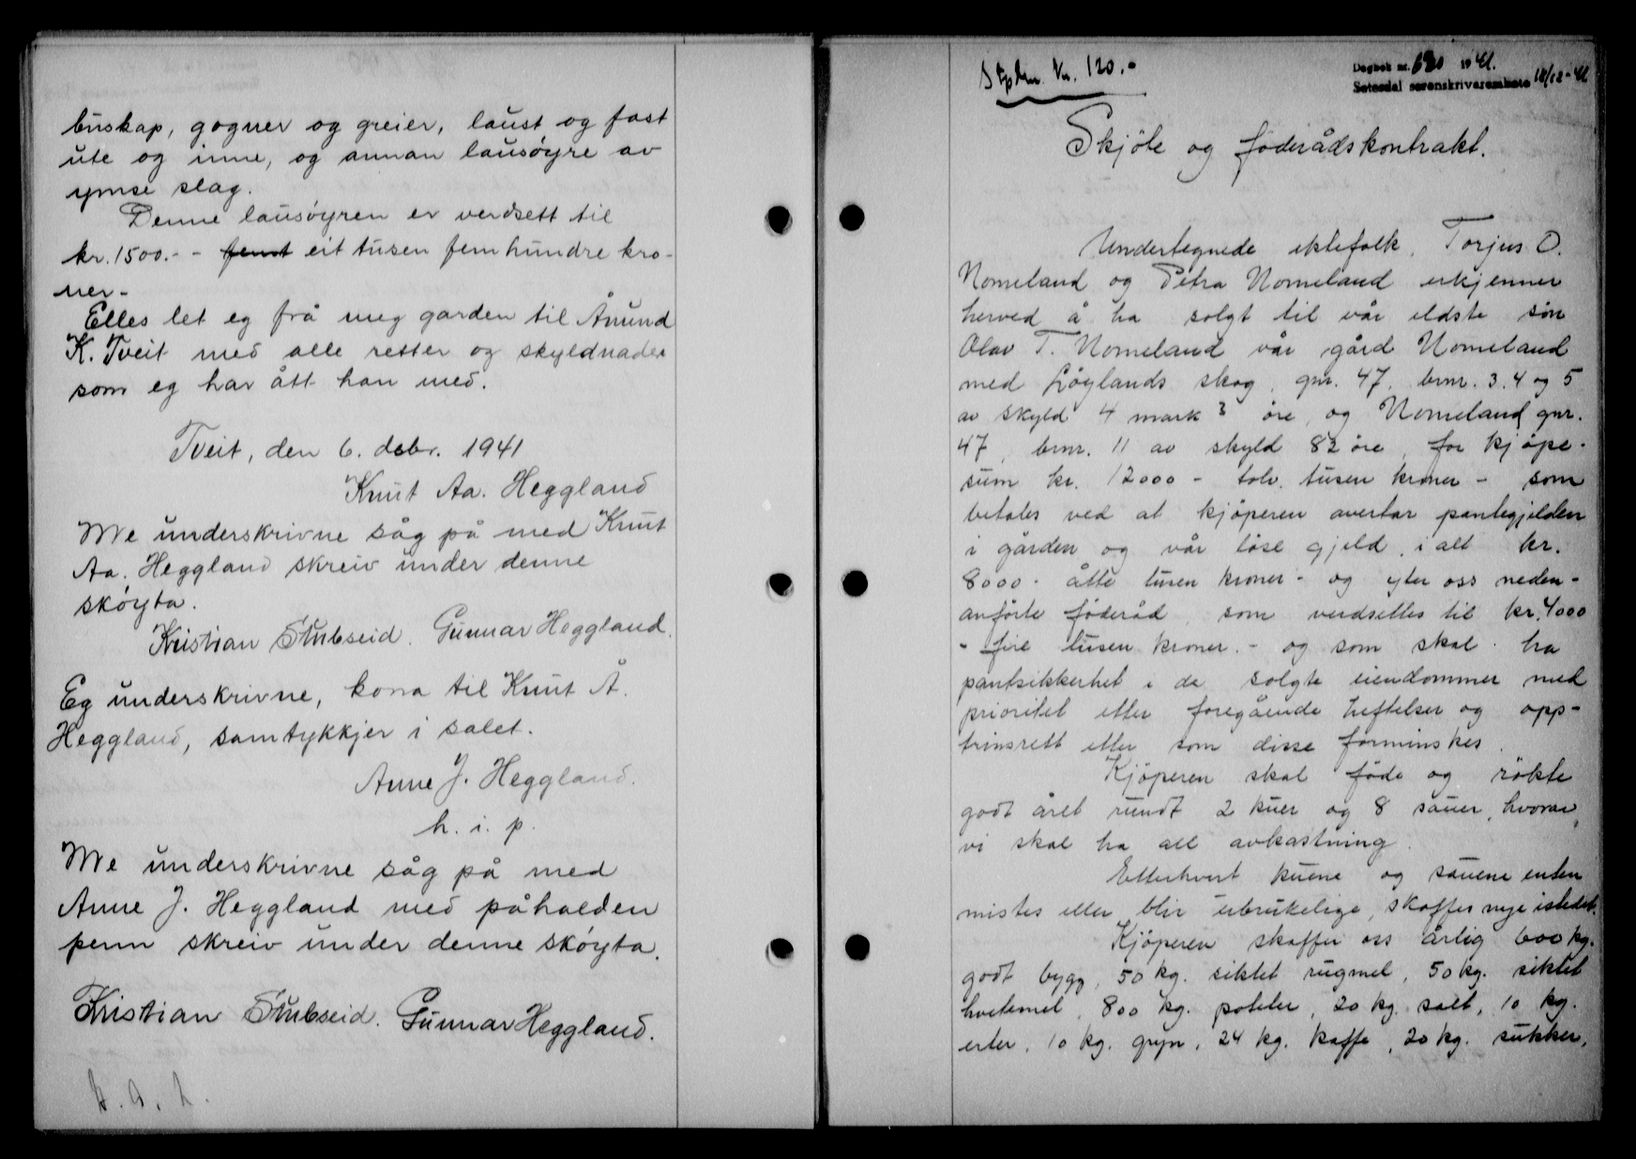 buskap, gogner og greier, laust og fast
ute og inne, og annan lausøyre av
ymse slag.
Denne lausøyren er verdsett til
kr. 1500.- - eit tusen fem hundre kro-
ner-
Elles let eg frå meg garden til Ånund
K. Tveit med alle retter og skyldnader
som eg har ått han med.
Tveit, den 6. desbr. 1941
Knut Aa. Heggland
Me underskrivne såg på med Knut
Aa. Heggland skreiv under denne
skøyta.
Kristian Stubseid. Gunnar Heggland.
Eg underskrivne, kona til Knut Å.
Heggland, samtykkjer i salet.
Anne J. Heggland.
h. i. p.
Me underskrivne såg på med
Anne J. Heggland med påhalden
penn skreiv under denne skøyta.
Kristian Stubseid. Gunnar Heggland.
Stplm. kr. 120.-
Dagbok nr. 680 1941.
Setesdal sorenskriverembete 18/12-41
Skjöte og föderådskontrakt.
Undertegnede ektefolk, Torjus O.
Nomeland og Petra Nomeland erkjenner
herved å ha solgt til vår eldste sön
Olav T. Nomeland vår gård Nomeland
med Löylands skog, gnr. 47, bnr. 3. 4 og 5
av skyld 4 mark 3 öre, og Nomeland gnr.
47, bnr. 11 av skyld 82 öre, for kjöpe-
sum kr. 12000 - tolv tusen kroner - som
betales ved at kjöperen overtar pantegjelden
i gården og vår löse gjeld, i alt kr.
8000 - åtte tusen kroner - og yter oss neden-
anförte föderåd, som verdsettes til kr. 4000
- fire tusen kroner. - og som skal ha
pantsikkerhet i de solgte eiendommer med
prioritet etter foregående heftelser og opp-
trinsrett etter som disse forminskes.
Kjöperen skal föde og rökte
godt året rundt 2 kuer og 8 sauer, hvorav
vi skal ha all avkastning.
Etterhvert kuene og sauene enten
mistes eller blir ubrukelige, skaffes nye istedet.
Kjöperen skaffer oss årlig 600 kg.
godt bygg, 50 kg. siktet rugmel, 50 kg. siktet
hvetemel, 800 kg. poteter, 20 kg. salt, 10 kg.
erter, 10 kg. gryn, 24 kg. kaffe, 20 kg. sukker,